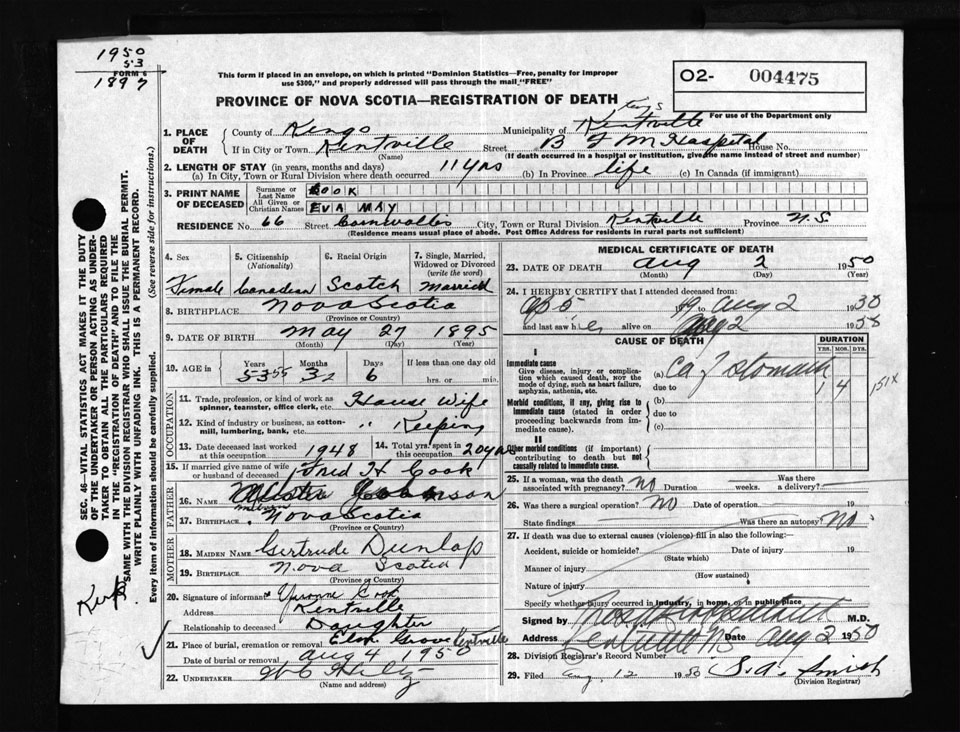 1950
53
FORM 6
1897
This form if placed in an envelope, on which is printed "Dominion Statistics—Free, penalty for improper
use $300," and properly addressed will pass through the mail "FREE"
O2- 004475
For use of the Department only
PROVINCE OF NOVA SCOTIA—REGISTRATION OF DEATH
1. PLACE OF DEATH
County of Kings Municipality of Kings Kentville
If in City or Town Kentville Street B F M Hospital House No.
(Name) (If death occurred in a hospital or institution, give the name instead of street and number)
2. LENGTH OF STAY (in years, months and days)
(a) In City, Town or Rural Division where death occurred 11 yrs (b) In Province life (c) In Canada (if immigrant)
3. PRINT NAME OF DECEASED
Surname or Last Name COOK
All Given or Christian Names EVA MAY
RESIDENCE No. 66 Street Cornwallis City, Town or Rural Division Kentville Province N.S
(Residence means usual place of abode. Post Office Address for residents in rural parts not sufficient)
4. Sex Female
5. Citizenship (Nationality) Canadian
6. Racial Origin Scotch
7. Single, Married, Widowed or Divorced (write the word) Married
8. BIRTHPLACE Nova Scotia
(Province or Country)
9. DATE OF BIRTH May 27 1895
(Month) (Day) (Year)
10. AGE in Years 55 Months Days 6 If less than one day old
hrs. or min.
OCCUPATION
11. Trade, profession or kind of work as spinner, teamster, office clerk, etc. House Wife
12. Kind of industry or business, as cotton-mill, lumbering, bank, etc. " Keeping
13. Date deceased last worked at this occupation 1948
14. Total yrs. spent in this occupation 20 yrs
15. If married give name of wife or husband of deceased Fred H Cook
FATHER
16. NAME
17. BIRTHPLACE Nova Scotia
(Province or Country)
MOTHER
18. MAIDEN NAME Gertrude Dunlap
19. BIRTHPLACE Nova Scotia
(Province or Country)
20. Signature of informant Yvonne Cook
Address Kentville
Relationship to deceased Daughter
21. Place of burial, cremation or removal Elm Grove Kentville
Date of burial or removal Aug 4 1950
22. UNDERTAKER W C Hiltz
(Name and address)
MEDICAL CERTIFICATE OF DEATH
23. DATE OF DEATH Aug 2 1950
(Month) (Day) (Year)
24. I HEREBY CERTIFY that I attended deceased from:
Ap 5 19 to Aug 2 1950
and last saw her alive on Aug 2 1950
CAUSE OF DEATH
DURATION
YRS. MOS. DYS.
I
Immediate cause
Give disease, injury or complication which caused death, not the mode of dying, such as heart failure, asphyxia, asthenia, etc.
(a) Ca of Stomach
due to 1 4 151X
Morbid conditions, if any, giving rise to immediate cause (stated in order proceeding backwards from immediate cause).
(b)
due to
(c)
II
Other morbid conditions (if important) contributing to death but not causally related to immediate cause.
25. If a woman, was the death associated with pregnancy? No Duration weeks. Was there a delivery?
26. Was there a surgical operation? No Date of operation 19
State findings Was there an autopsy? No
27. If death was due to external causes (violence) fill in also the following:—
Accident, suicide or homicide? Date of injury 19
(State which)
Manner of injury
(How sustained)
Nature of injury
Specify whether injury occurred in industry, in home, or in public place
Signed by M.D.
Address Kentville NS Date Aug 2 1950
28. Division Registrar's Record Number
29. Filed Aug. 12 1950 S.A. Smith
(Division Registrar)
SEC. 46—VITAL STATISTICS ACT MAKES IT THE DUTY
OF THE UNDERTAKER OR PERSON ACTING AS UNDER-
TAKER TO OBTAIN ALL THE PARTICULARS REQUIRED
IN THE "REGISTRATION OF DEATH" AND TO FILE THE
SAME WITH THE DIVISION REGISTRAR WHO SHALL ISSUE THE BURIAL PERMIT.
WRITE PLAINLY WITH UNFADING INK. THIS IS A PERMANENT RECORD.
Every item of information should be carefully supplied. (See reverse side for instructions.)